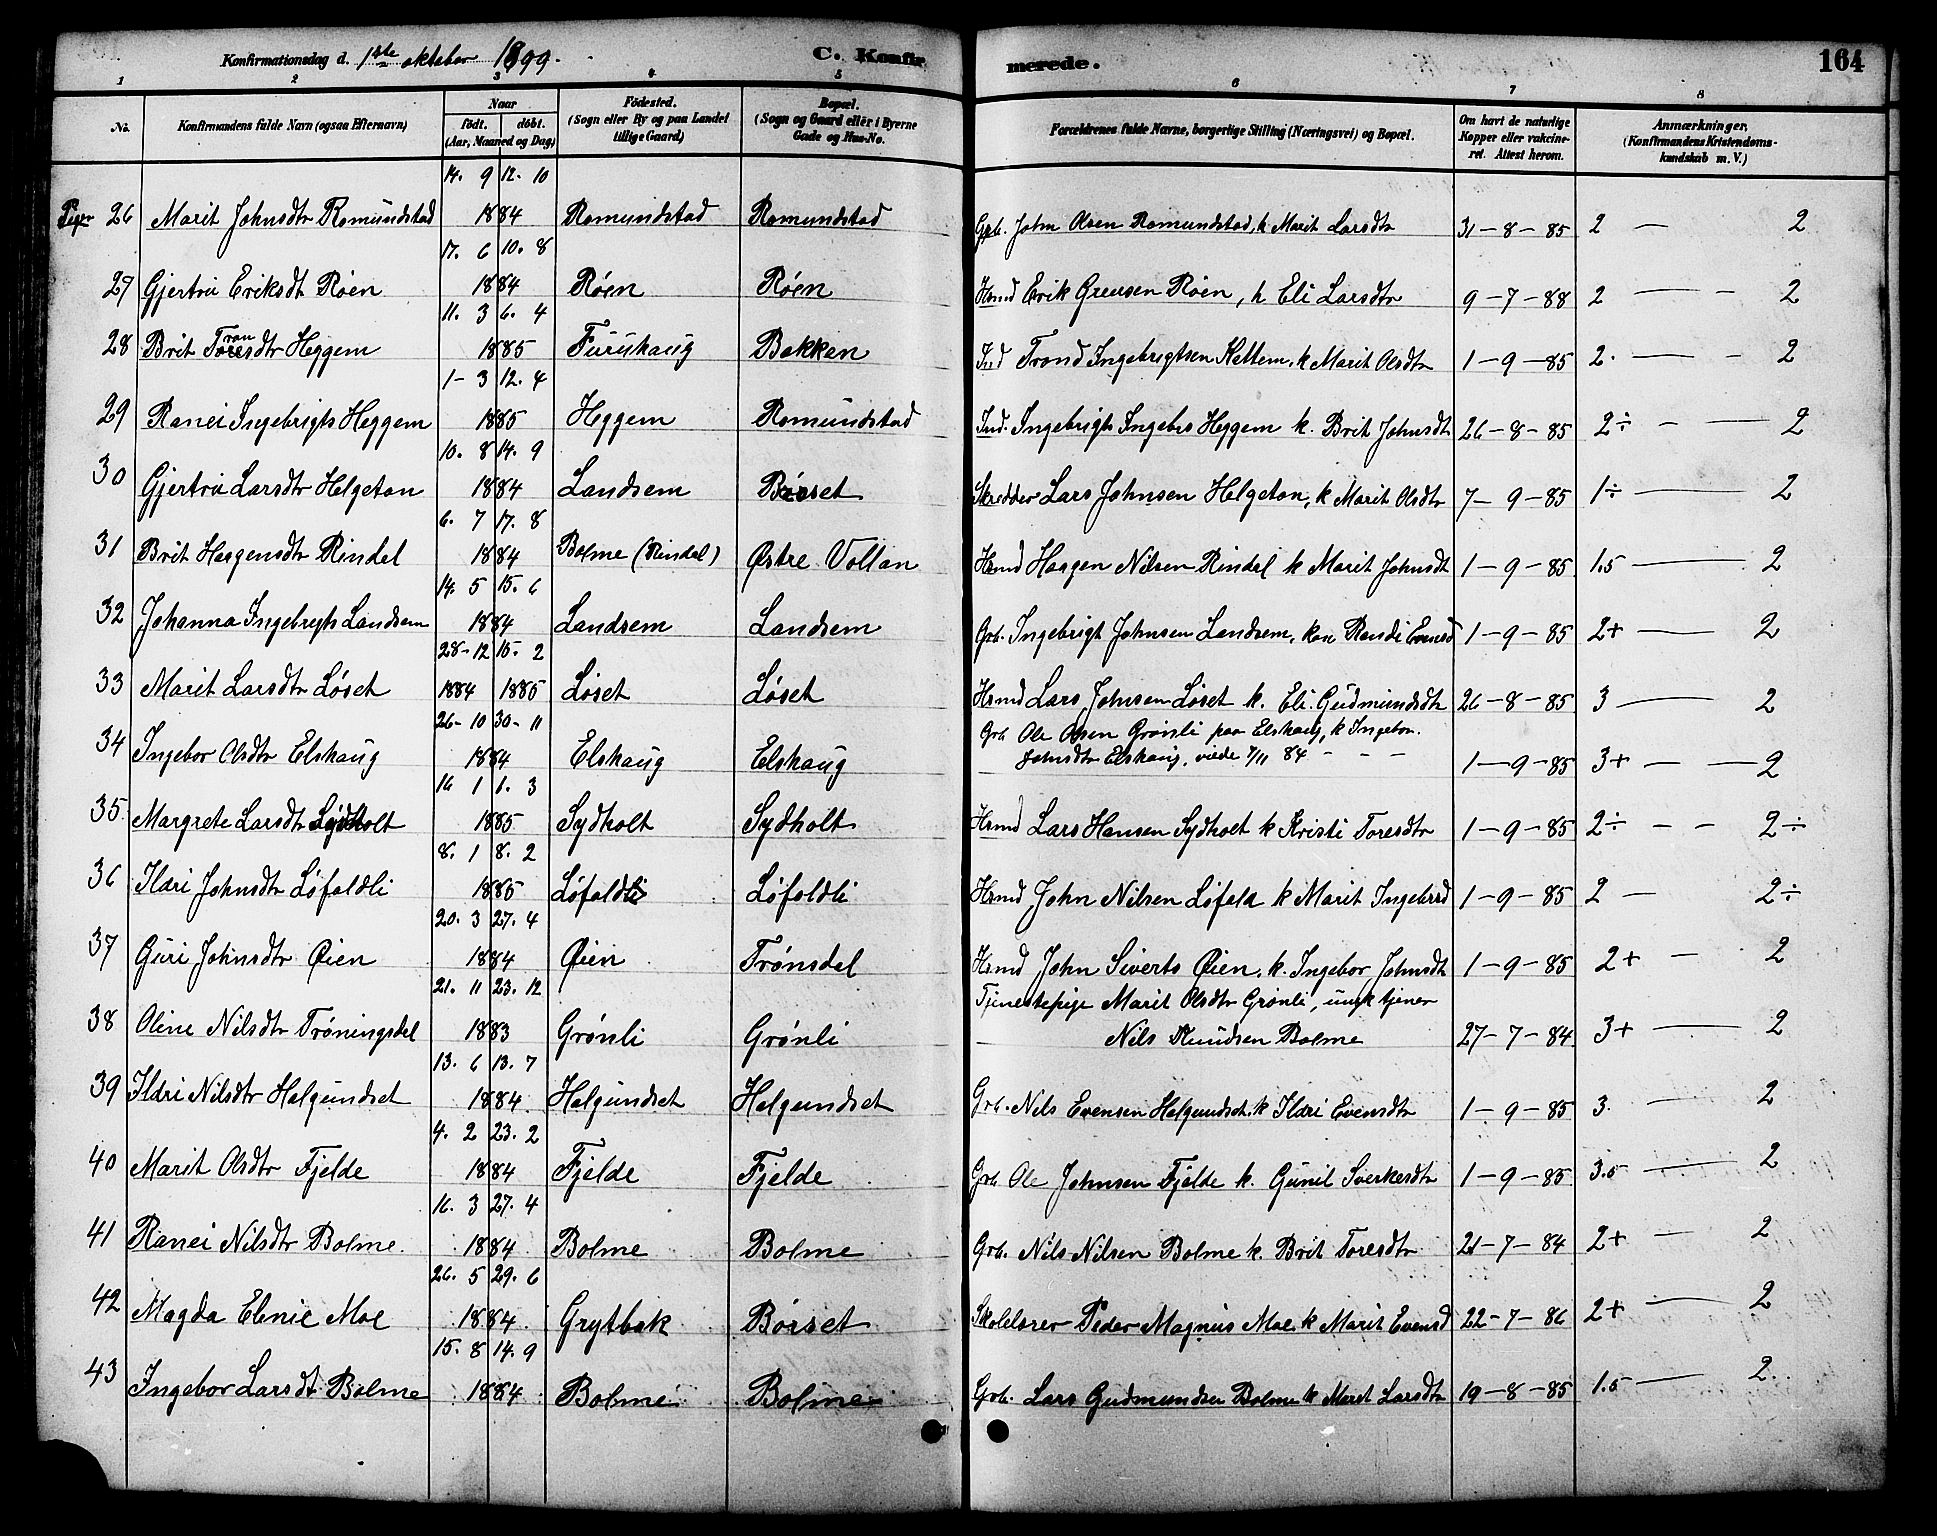 Konfirmationsdag d. 1ste oktober 1899. C. Konfirmerede. 164
1 2 3 4 5 6 7 8
No. Konfirmandens fulde Navn (ogsaa Efternavn) Naar født. døbt. (Aar, Maaned og Dag) Fødested. (Sogn eller By og paa Landet tillige Gaard) Bopæl. (Sogn og Gaard eller i Byerne Gade og Hus-No. Forældrenes fulde Navne, borgerlige Stilling (Næringsvei) og Bopæl. Om havt de naturlige Kopper eller vakcineret. Attest herom. Anmærkninger. (Konfirmandens Kristendomskundskab m. V.)
14. 9 12. 10
Piger 26 Marit Johnsdtr Romundstad 1884 Romundstad Romundstad Grb. John Olsen Romundstad, k Marit Larsdtr 31-8-85 2 — 2
17. 6 10. 8
27 Gjertru Eriksdt Røen 1884 Røen Røen Hsmd Erik Greusen Røen, h Eli Larsdtr 9-7-88 2 — - 2
11. 3 6. 4
28 Brit Tronsdtr Heggem 1885 Furuhaug Bakken Ind Trond Ingebrigtsen Kattem, k Marit Olsdtr 1-9-85 2. — - 2
1- 3 12. 4
29 Ranei Ingebrigts Heggem 1885 Heggem Romundstad Ind. Ingebrigt Ingebrs Heggem k. Brit Johnsdt 26-8-85 2÷ - — 2
10. 8 14. 9
30 Gjertru Larsdtr Helgeton 1884 Landsem Børset Skredder Lars Johnsen Helgeton, k Marit Olsdtr 7-9-85 1÷ — 2
6. 7 17. 8
31 Brit Haagensdtr Rindal 1884 Bolme (Rindal) Østre Vollan Hsmd Haagen Nilsen Rindal k Marit Johnsdt 1-9-85 1.5 — 2
14. 5 15. 6
32 Johanna Ingebrigts Landsem 1884 Landsem Landsem Grb. Ingebrigt Johnsen Landsem, kone Randi Evensd 1-9-85 2+ — 2
28-12 15. 2
33 Marit Larsdtr Løset 1884 1885 Løset Løset Hsmd Lars Johnsen Løset k. Eli Gudmundsdtr 26-8-85 3 — 2
26-10 30-11 Grb Ole Olsen Grønli paa Elshaug, k Ingebor.
34 Ingebor Olsdtr Elshaug 1884 Elshaug Elshaug Johnsdtr Elshaug, viede 7/11 84 - - - 1-9-85 3+ — — 2
16 1 1. 3
35. Margrete Larsdtr Sydholt 1885 Sydholt Sydholt Hsmd Lars Hansen Sydholt k Kristi Toresdtr 1-9-85 2÷ - - 2÷
8. 1 8. 2
36 Ildri Johnsdtr Løfaldli 1885 Løfaldli Løfaldli Hsmd John Nilsen Løfald k Marit Ingebrsd 1-9-85 2 — 2÷
20. 3 27. 4
37 Guri Johnsdtr Øien 1884 Øien Trønsdal Hsmd John Siverts Øien, k. Ingebor Johnsdt 1-9-85 2+ — 2
21. 11 23. 12 Tjenestepige Marit Olsdtr Grønli, ungk tjener
38 Oline Nilsdtr Trøningsdal 1883 Grønli Grønli Nils Knudsen Bolme 27-7-84 3+ — 2
13. 6 13. 7
39 Ildri Nilsdtr Halgundset 1884. Halgundset Halgundset Grb. Nils Evensen Halgundset. k Ildri Evensdtr 1-9-85 3. — 2
4. 2 23. 2
40 Marit Olsdtr Fjelde 1884 Fjelde Fjelde Grb Ole Johnsen Fjelde k. Gunil Sverkesdtr 1-9-85 3.5 — 2
16. 3 27. 4
41 Ranei Nilsdtr Bolme. 1884 Bolme Bolme Grb. Nils Nilsen Bolme k. Brit Toresdtr 21-7-84 2+ — 2
26. 5 29. 6
42 Magda Elenie Moe 1884. Grytbak Børset Skolelærer Peder Magnus Moe. k Marit Evensd 22-7-86 2+ — 2
15. 8 14. 9
43 Ingebor Larsdt Bolme 1884 Bolme Bolme Grb. Lars Gudmundsen Bolme k Marit Larsdtr 19-8-85 1.5 — 2.